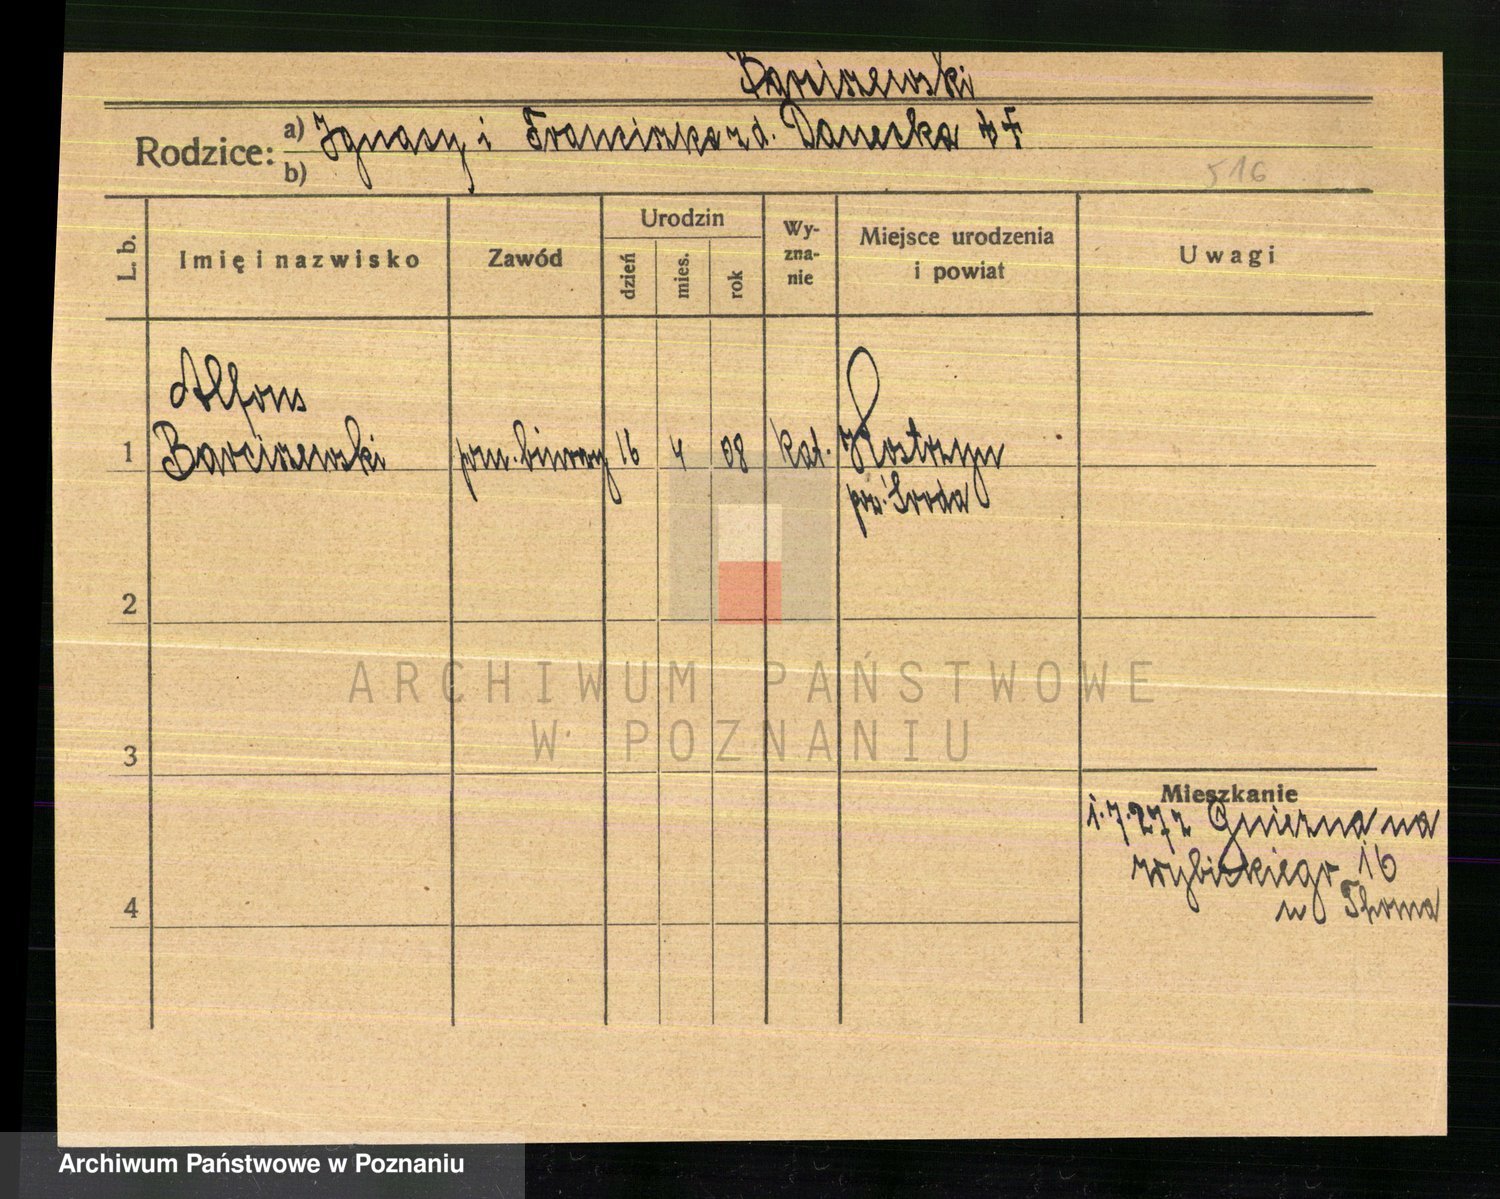 Barciszewski
Rodzice: a) Ignacy i Franciszka z d. Danecka ++
b)
516
L. b. Imię i nazwisko Zawód Urodzin dzień mies. rok Wyznanie Miejsce urodzenia i powiat Uwagi
Alfons
1 Barciszewski prac. biurowy 16 4 08 kat. Kostrzyn
pow. Środa
2
ARCHIWUM PAŃSTWOWE
W POZNANIU
3
Mieszkanie
1.7.27 z Gniezna na
Wybickiego 16
u Thoma
4
Archiwum Państwowe w Poznaniu